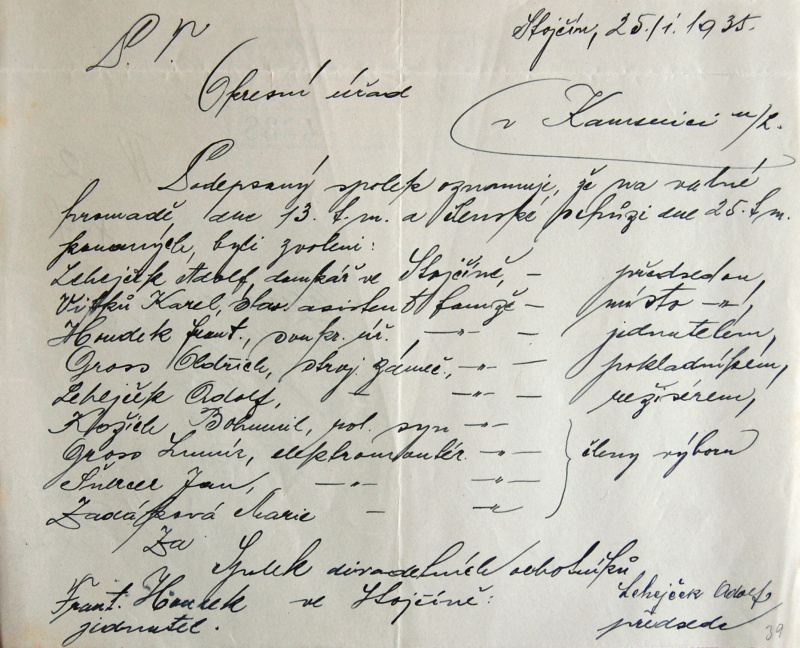 P. T.
Stojčín, 25./1. 1935.
Okresní úřad
v Kamenici n/L.
Podepsaný spolek oznamuje, že na valné
hromadě dne 13. t.m. a členské schůzi dne 25. t.m.
konaných, byli zvoleni:
Lehejček Adolf, domkář ve Stojčíně, — předsedou,
Vítků Karel, stav. asistent tamže — místo —„—,
Houdek Frant., soukr. úř., —„— — jednatelem,
Gross Oldřich, stroj. zámeč., —„— — pokladníkem,
Lehejček Adolf, — —„— — režisérem,
Bohumil, rol. syn —„—
Gross Lumír, elektromontér. —„— — členy výboru
Jan, —„— —„—
Marie — —„—
Za
Spolek divadelních ochotníků
Frant. Houdek ve Stojčíně: Lehejček Adolf
jednatel. předseda
39